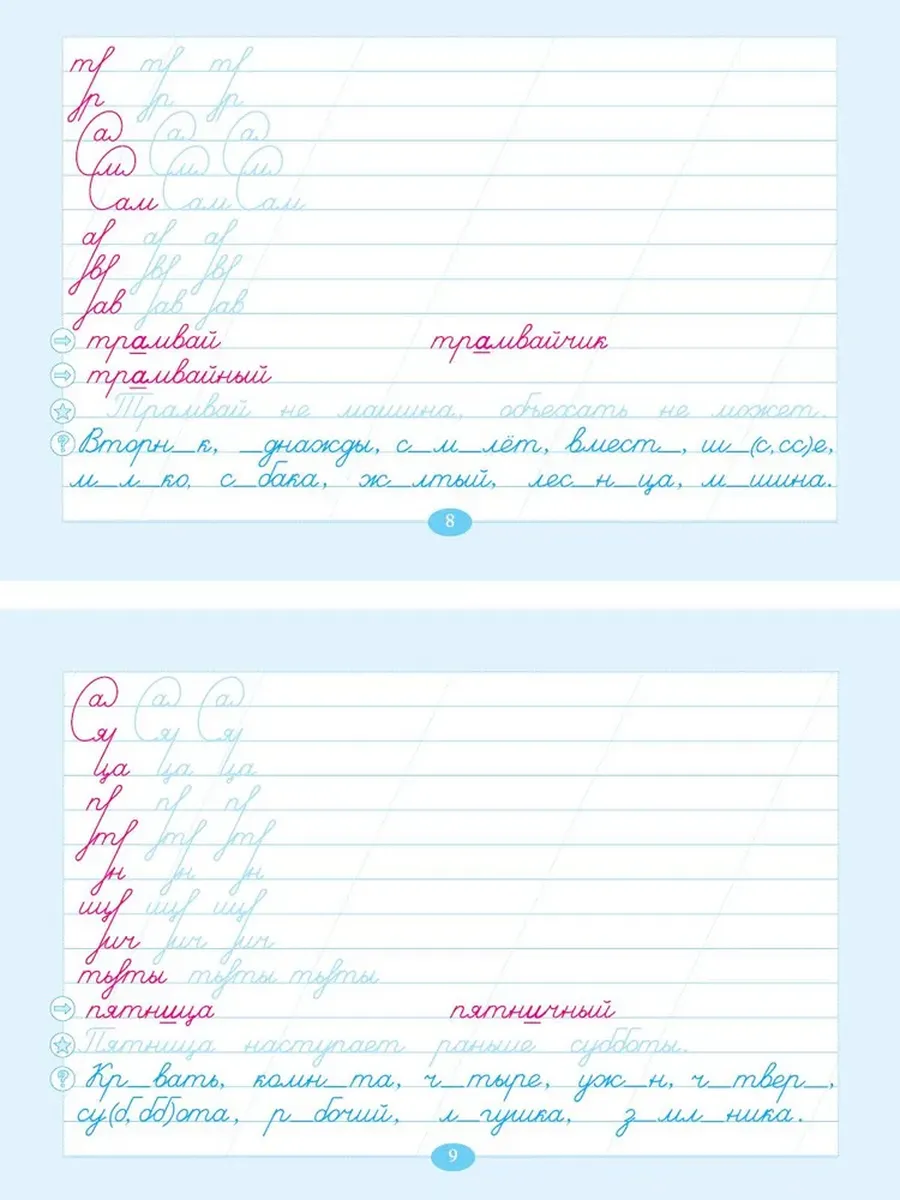 тр тр тр
а а а
м м м
ам ам ам
ав ав ав
трамвай трамвайчик
трамвайный
Трамвай не машина, объехать не может.
Вторн_к, _днажды, с_м_лёт, вмест_, ш_(с,сс)е,
м_л_ко, с_бака, ж_лтый, лес_н_ца, м_шина.
8
а а а
ця ця ця
ца ца ца
н н н
ич ич ич
ты ты ты
пятница пятничный
Пятница наступает раньше субботы.
Кр_вать, комн_та, ч_тыре, уж_н, ч_твер_,
су(б,бб)ота, р_бочий, л_гушка, з_мл_ника.
9